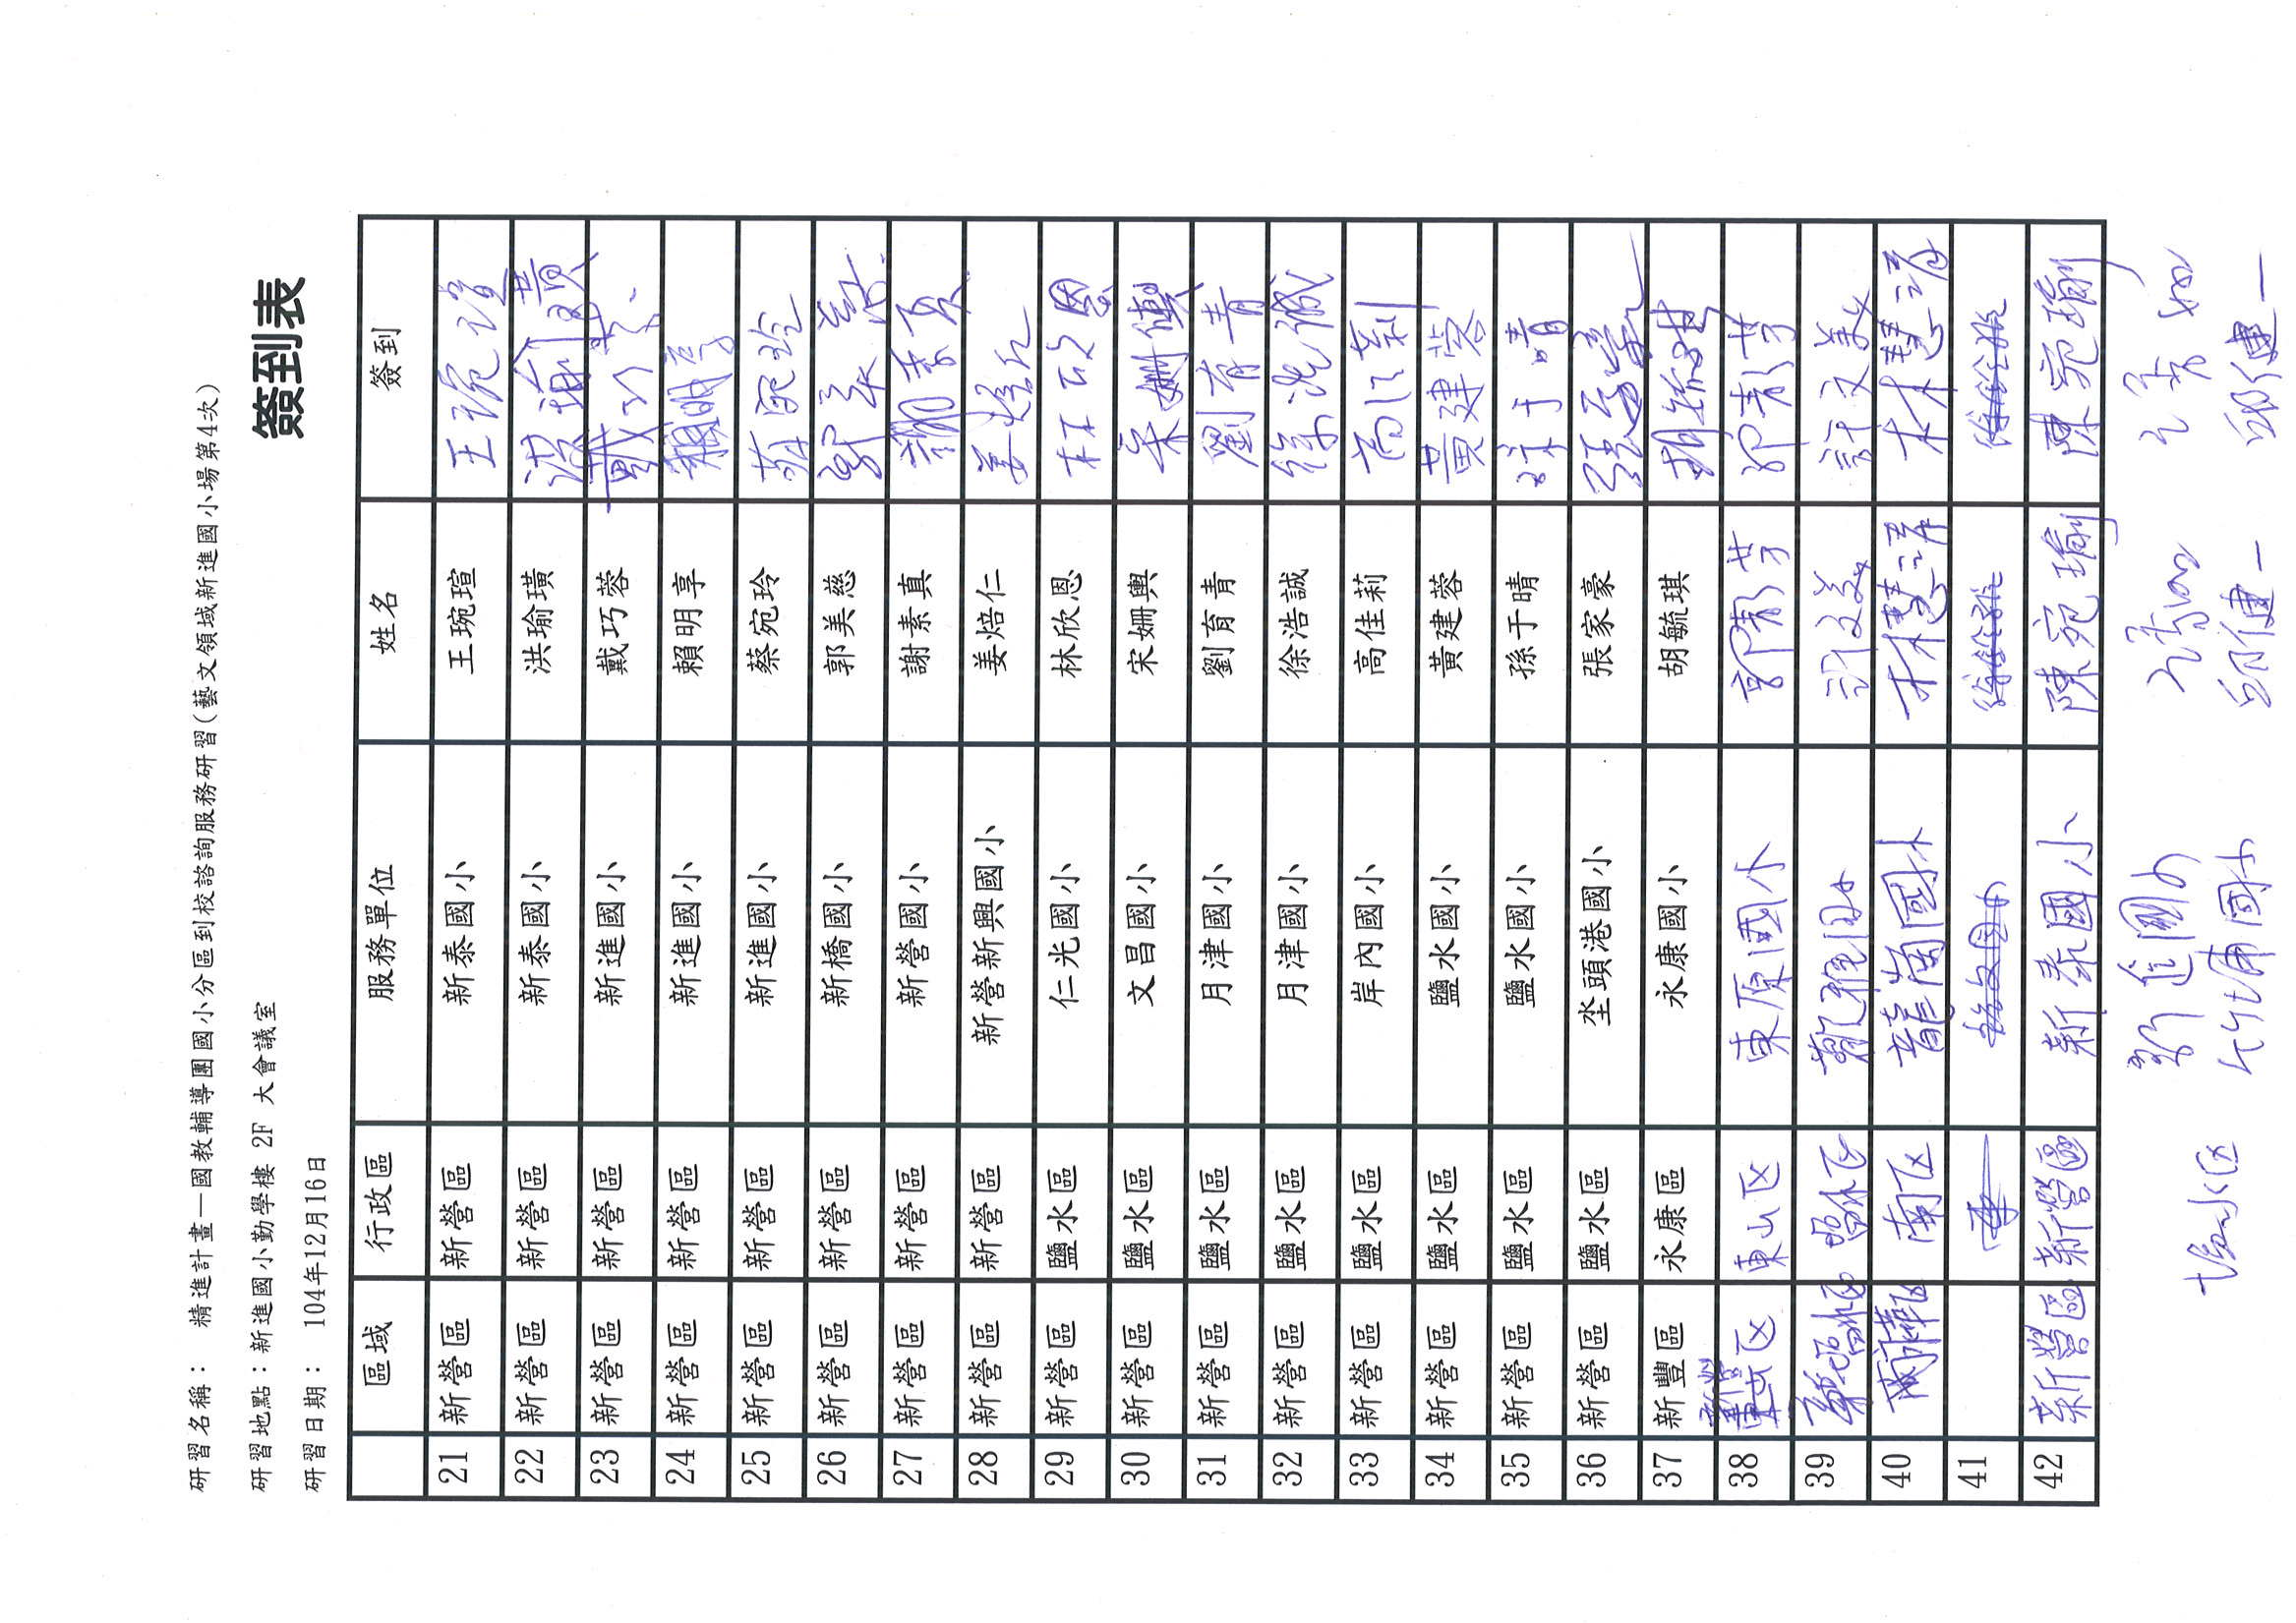 研習名稱： 精進計畫—國教輔導團國小分區到校諮詢服務研習(藝文領域新進國小場第4次)
研習地點：新進國小勤學樓 2F 大會議室
簽到表
研習日期： 104年12月16日
區域 行政區 服務單位 姓名 簽到
21 新營區 新營區 新泰國小 王琬瑄 王琬瑄
22 新營區 新營區 新泰國小 洪瑜璜 洪瑜璜
23 新營區 新營區 新進國小 戴巧蓉 戴巧蓉
24 新營區 新營區 新進國小 賴明享 賴明享
25 新營區 新營區 新進國小 蔡宛玲 蔡宛玲
26 新營區 新營區 新橋國小 郭美慈 郭美慈
27 新營區 新營區 新營國小 謝素真 謝素真
28 新營區 新營區 新營新興國小 姜焙仁 姜焙仁
29 新營區 鹽水區 仁光國小 林欣恩 林欣恩
30 新營區 鹽水區 文昌國小 宋姍輿 宋姍輿
31 新營區 鹽水區 月津國小 劉育青 劉育青
32 新營區 鹽水區 月津國小 徐浩誠 徐浩誠
33 新營區 鹽水區 岸內國小 高佳莉 高佳莉
34 新營區 鹽水區 鹽水國小 黃建蓉 黃建蓉
35 新營區 鹽水區 鹽水國小 孫于晴 孫于晴
36 新營區 鹽水區 坔頭港國小 張家豪 張家豪
37 新豐區 永康區 永康國小 胡毓琪 胡毓琪
38 東山区 東原國小
39 許文美
40 南区 龍崗國小 林慧諄
41
42 新營區 新營區 新泰國小 陳宛瑜 陳宛瑜
新進國小
塩水区 竹埔國小 邱健一 邱健一